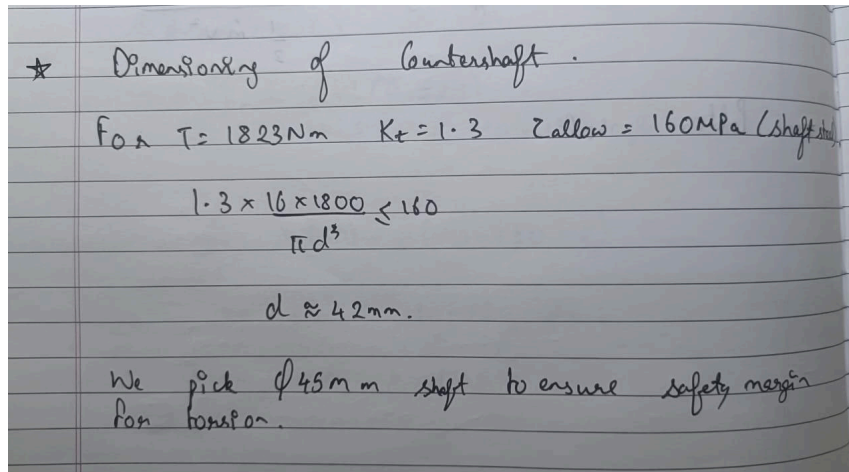 ☆ Dimensioning of Countershaft.
For T = 1823Nm Kt = 1.3 τallow = 160MPa (shaft
1.3 × 16 × 1800 / πd³ ≤ 160
d ≈ 42mm.
We pick φ45mm shaft to ensure safety margin
for torsion.